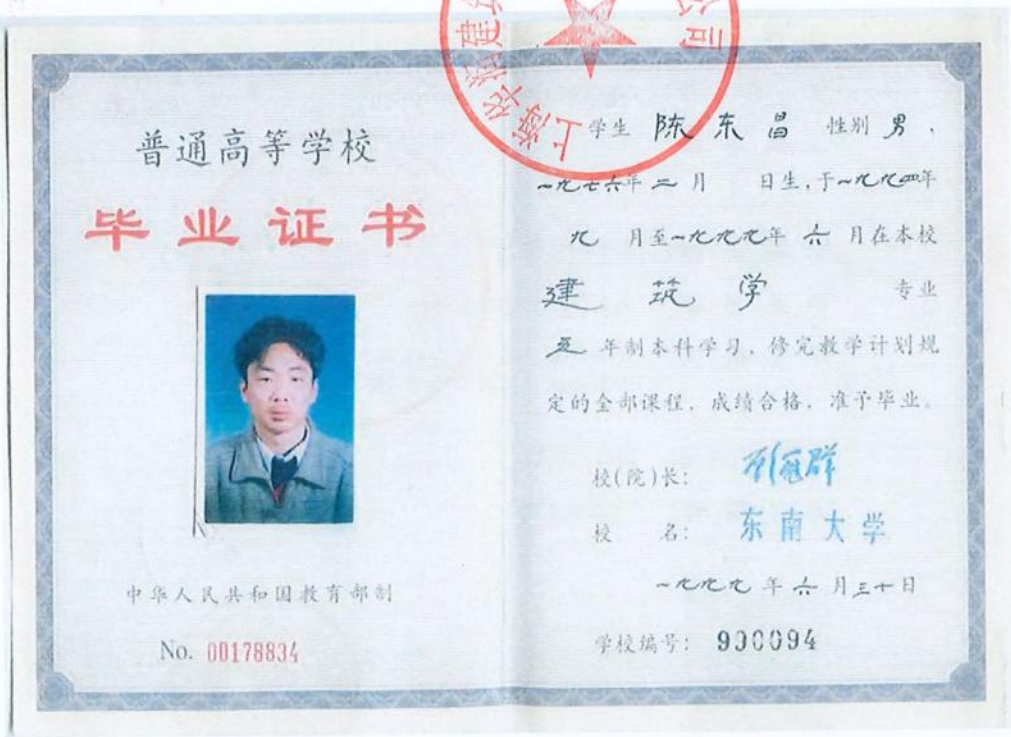 普通高等学校
毕业证书
中华人民共和国教育部制
No. 00178834
上海华
建
公司
学生 陈东昌 性别 男,
一九七六年二月 日生,于一九九四年
九 月至一九九九年 六 月在本校
建 筑 学 专业
五 年制本科学习,修完教学计划规
定的全部课程,成绩合格,准予毕业。
校(院)长:
校 名: 东南大学
一九九九 年 六 月三十日
学校编号: 990094